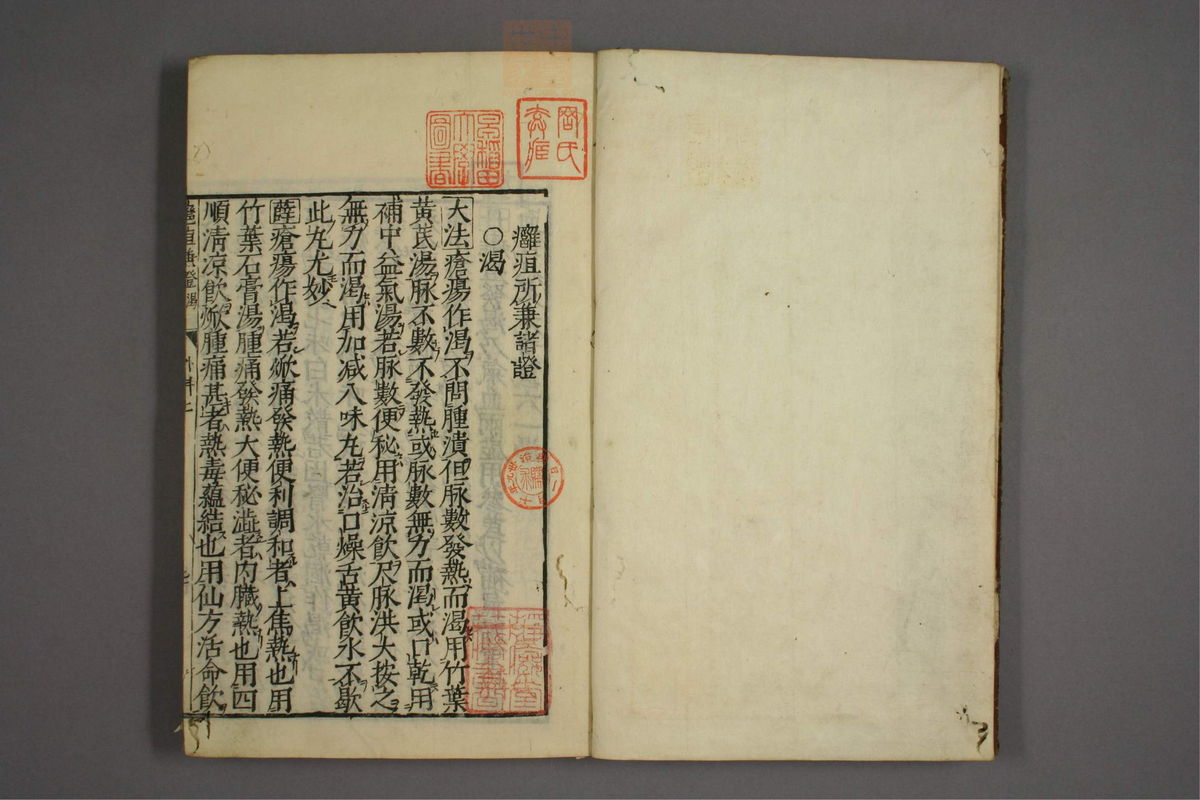 癰疽所兼諸證
○渴
大法瘡瘍作渴不問腫潰但脉數發熱而渴用竹葉
黃芪湯脉不數不發熱或脉數無力而渴或口乾用
補中益氣湯若脉數便秘用清涼飲尺脉洪大按之
無力而渴用加减八味丸若治口燥舌黃飲水不歇
此丸尤妙
薛瘡瘍作渴若焮痛發熱便利調和者上焦熱也用
竹葉石膏湯腫痛發熱大便秘澁者內臟熱也用四
順清涼飲焮腫痛甚者熱毒蘊結也用仙方活命飲
早稻田大學圖書